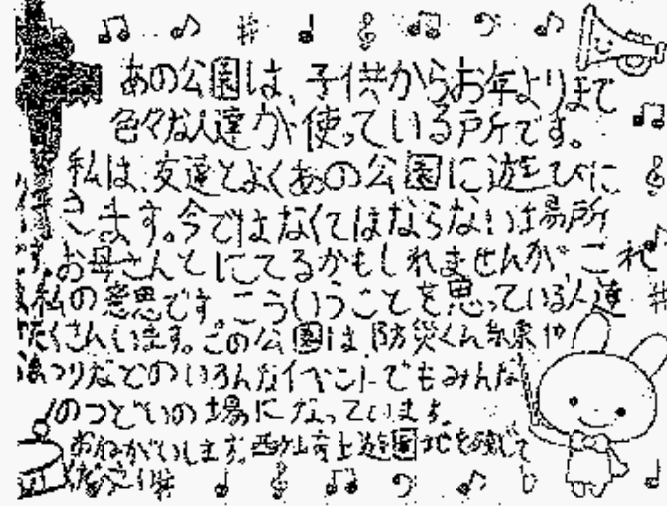 あの公園は、子供からお年よりまで
色々な人達が使っている戸所です。
私は、友達とよくあの公園に遊びに
きます。今ではなくてはならない場所
です。お母さんとにてるかもしれませんが、これ
私の意思です。こういうことを思っている人達
たくさんいます。この公園は、防災くん練や
まつりなどのいろんなイベントでもみんな
のつどいの場になっています。
おねがいします。西ケ山市上遊園地を残して
ください